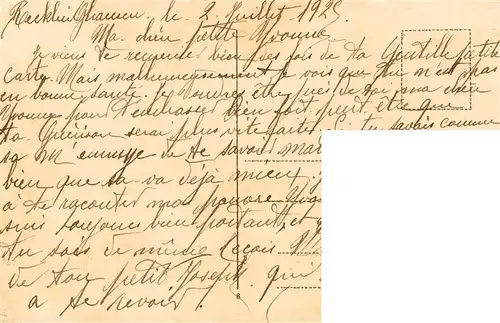 Recklinghausen, le 2 Juillet 1925
Ma chèr petite Yvonne
Je viens de recevoir bien des fois de ta Gentille petite
Carte. Mais malheureusement je vois que tu n'est pas
en bonne santé. Je voudrais être près de toi ma chèr
Yvonne pour t'embrasser bien fort peut être que
ta Guérison serai plus vite faite. Si tu savais comme
sa m'ennuye de te savoir mal
bien que sa va déjà mieux.
à te raconter mon pauvre
suis toujours bien portant, et
tu sois de même Reçois
de ton petit Joseph. qui
a te revoir.